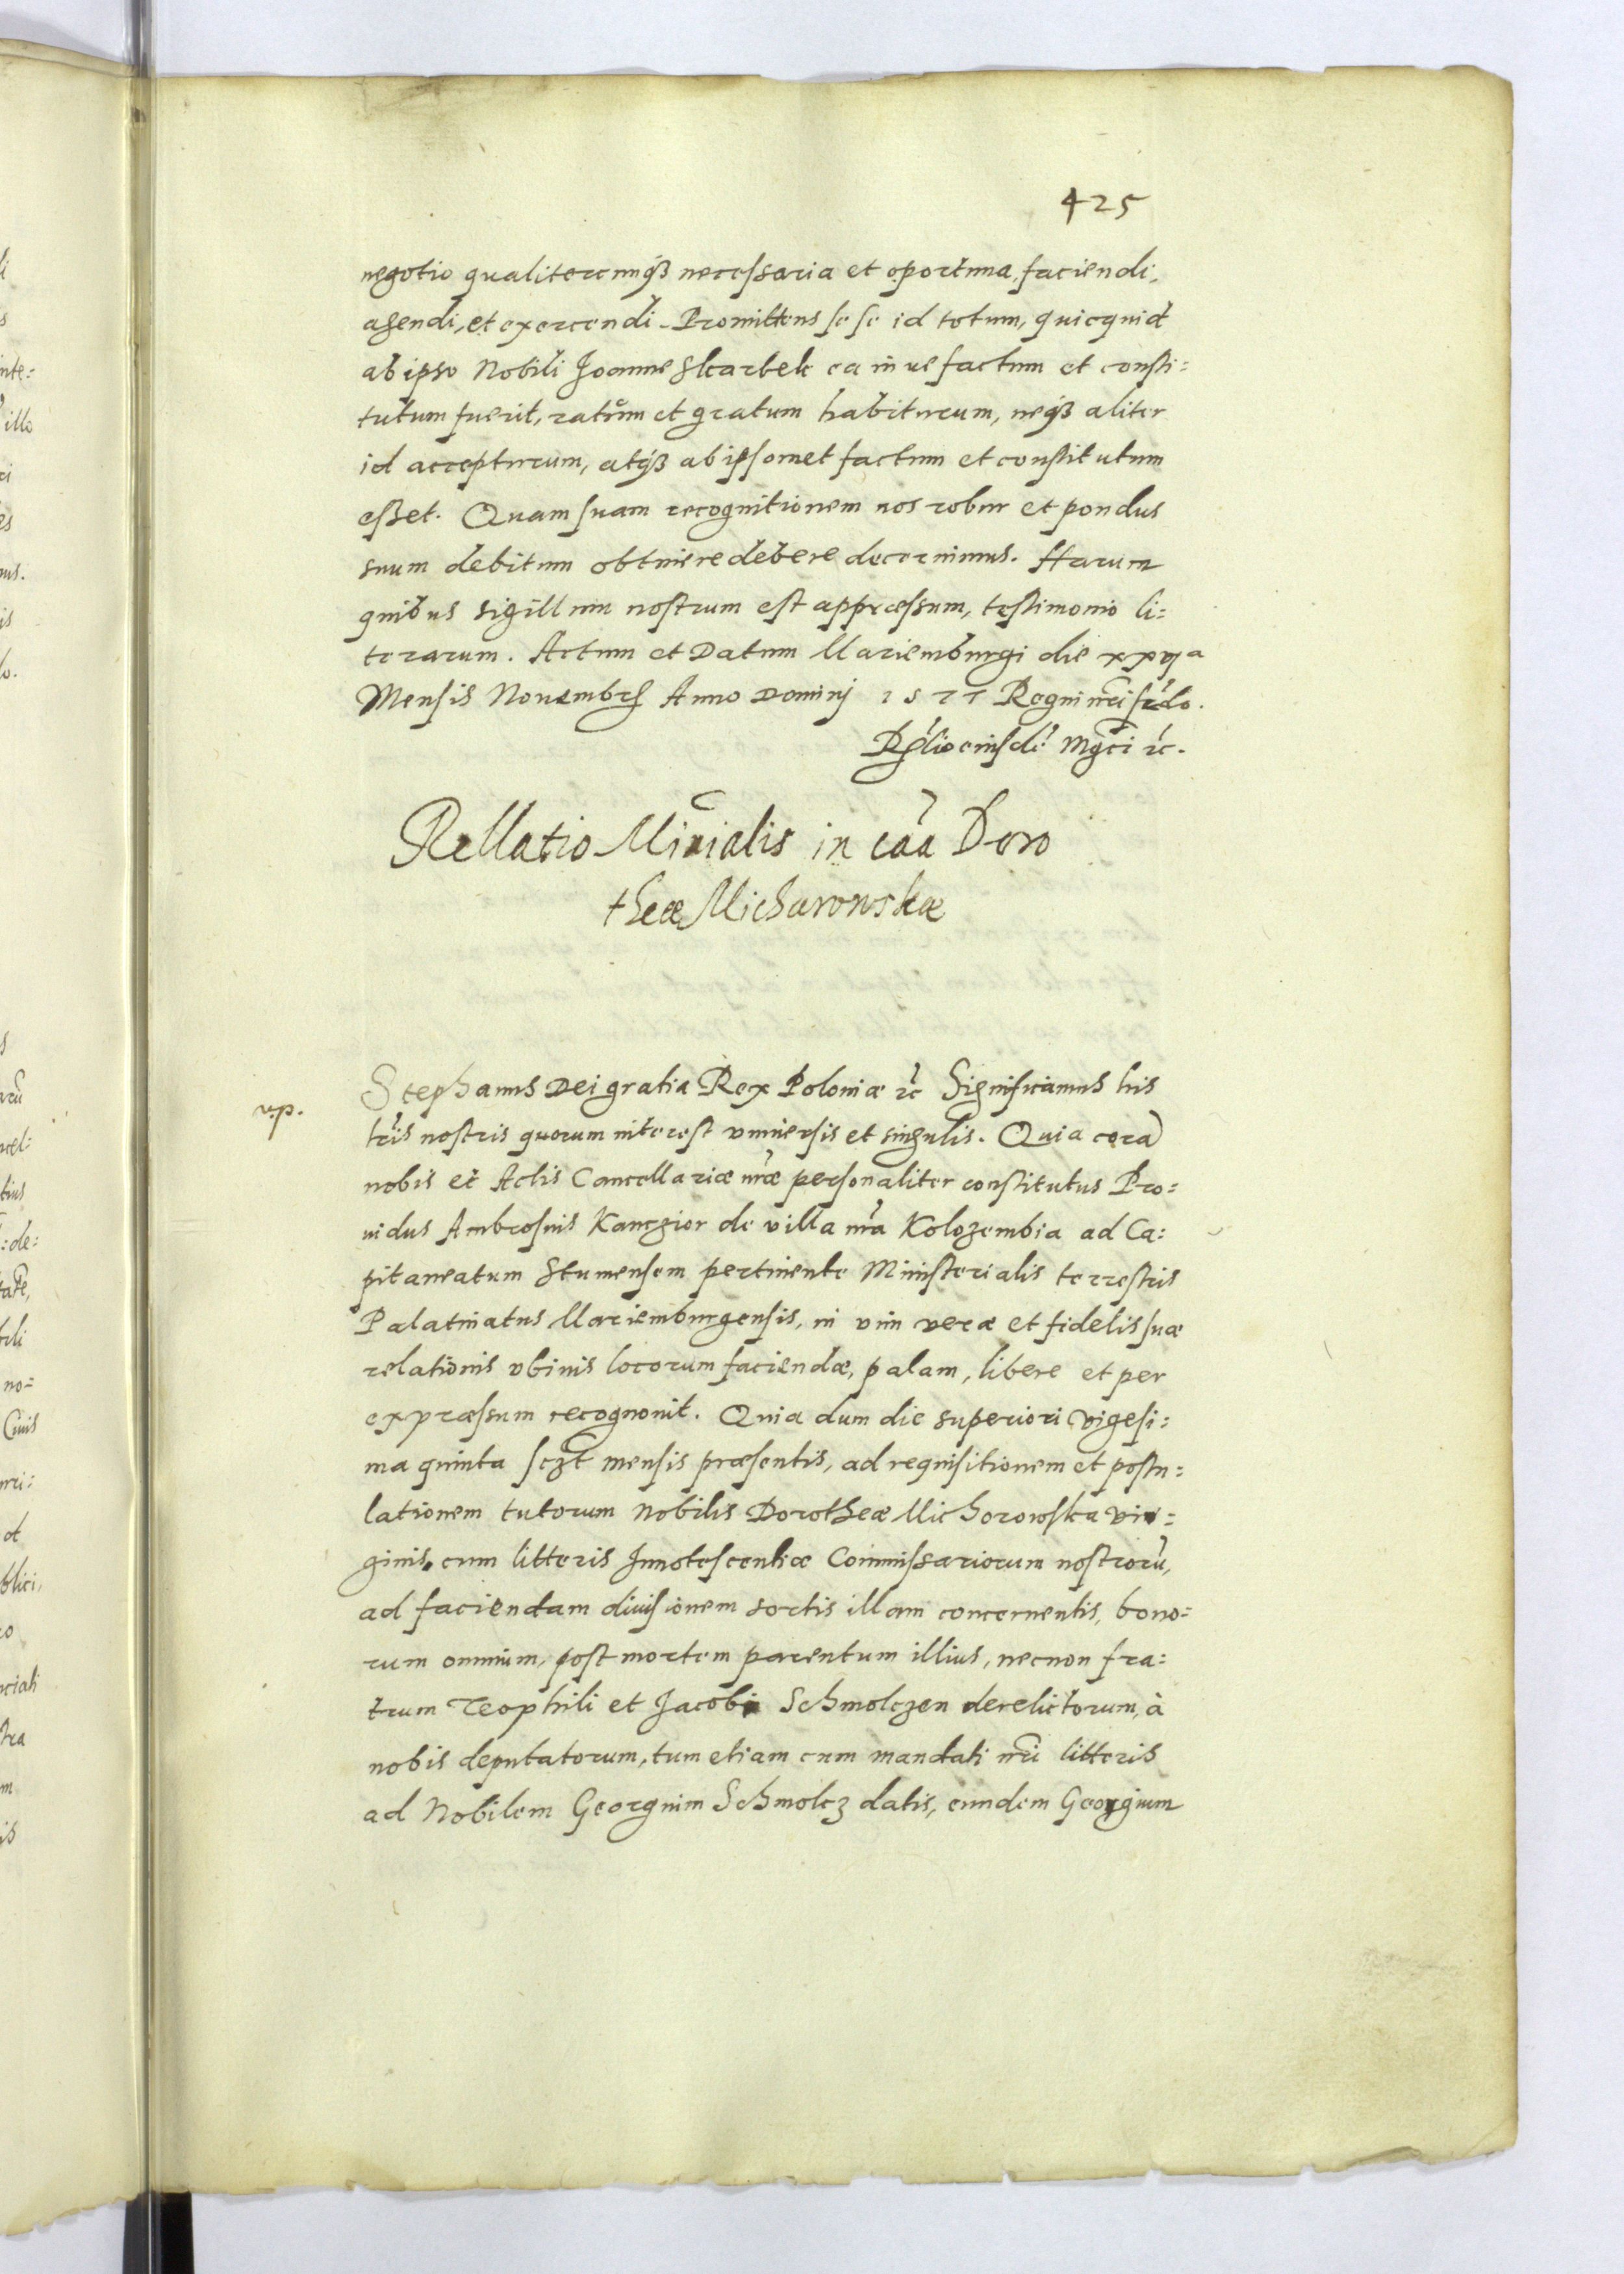 425
negotio qualitercunqȝ necessaria et oportuna, faciendi,
agendi, et exercendi. Promittens sese id totum, quicquid
ab ipso Nobili Joanne Skarbek ea in re factum et consti=
tutum fuerit, ratum et gratum habiturum, neqȝ aliter
id accepturum, atqȝ ab ipsomet factum et constitutum
esset. Quam suam recognitionem nos robur et pondus
suum debitum obtinere debere decernimus. Harum
quibus sigillum nostrum est appræssum, testimonio li=
terarum. Actum et Datum Mariemburgi die xxvja
Mensis Novembris Anno Dominj 1577 Regni nri scdo.
Rglio eiusdē Mgci ꝛc.
Rellatio Minialis in caa Doro
theæ Micharowskæ
v.p.
Stephanus Dei gratia Rex Poloniæ ꝛc Significamus his
lris nostris quorum interest vniuersis et singulis. Quia corā
nobis et Actis Cancellariæ nræ personaliter constitutus Pro=
uidus Ambrosius Kanczior de villa nra Kolozembia ad Ca=
pitaneatum Stumensem pertinente Ministerialis terrestris
Palatinatus Mariemburgensis, in vim veræ et fidelis suæ
relationis vbiuis locorum faciendæ, palam, libere et per
expræssum recognouit. Quia dum die superiori vigesi=
ma quinta sczt mensis præsentis, ad requisitionem et postu=
lationem tutorum Nobilis Dorotheæ Michorowska vir=
ginis, cum litteris Innotescentiæ Commissariorum nostrorū,
ad faciendam diuisionem sortis illam concernentis, bono=
rum omnium, post mortem parentum illius, necnon fra=
trum Teophili et Jacobi Schmolczen derelictorum, à
nobis deputatorum, tum etiam cum mandati nri litteris
ad Nobilem Georgium Schmolcz datis, eundem Georgium